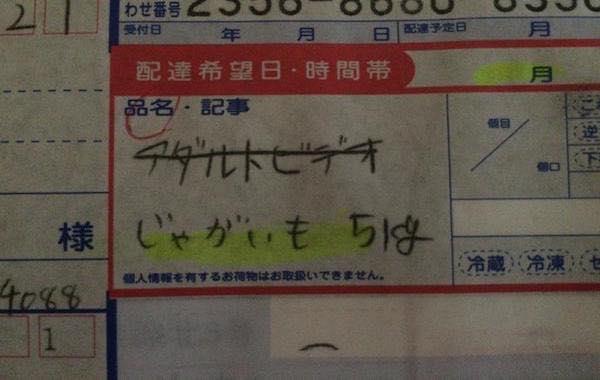 21
わせ番号 2356-8680
受付日 年 月 日 配達予定日 月
配達希望日・時間帯 月
品名・記事
アダルトビデオ
じゃがいも 5kg
個人情報を有するお荷物はお取扱いできません。
個目
個口
逆
下
冷蔵 冷凍 セ
様
4088
1